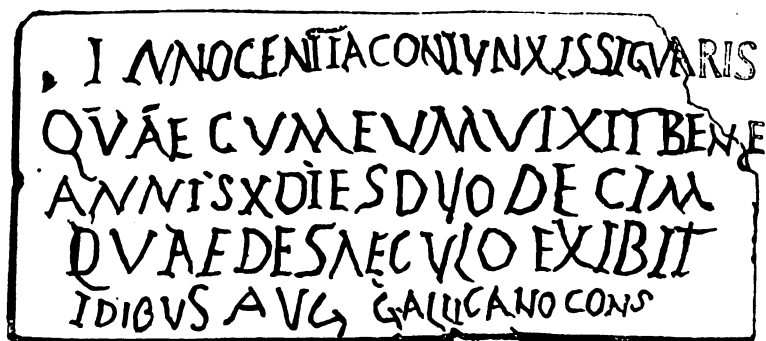 INNOCENTIA CONIVNX ISSIGVARIS
QVAE CVM EVM VIXIT BENE
ANNIS X DIES DVODECIM
QVAE DE SAECVLO EXIBIT
IDIBVS AVG GALLICANO CONS